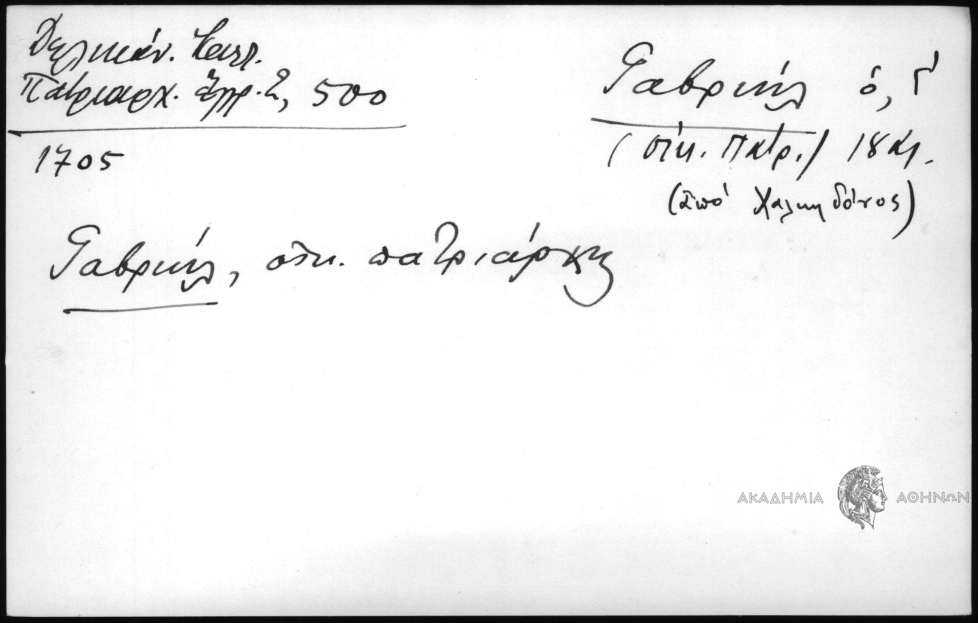 Δελικάν. Καλλ.
Πατριαρχ. Ἔγγρ. 2, 500
1705
Γαβριήλ ὁ, Γ΄
(οἰκ. Πατρ.) 18 αἰ.
(ἀπό Χαλκηδόνος)
Γαβριήλ, οἰκ. πατριάρχης
ΑΚΑΔΗΜΙΑ ΑΘΗΝΩΝ